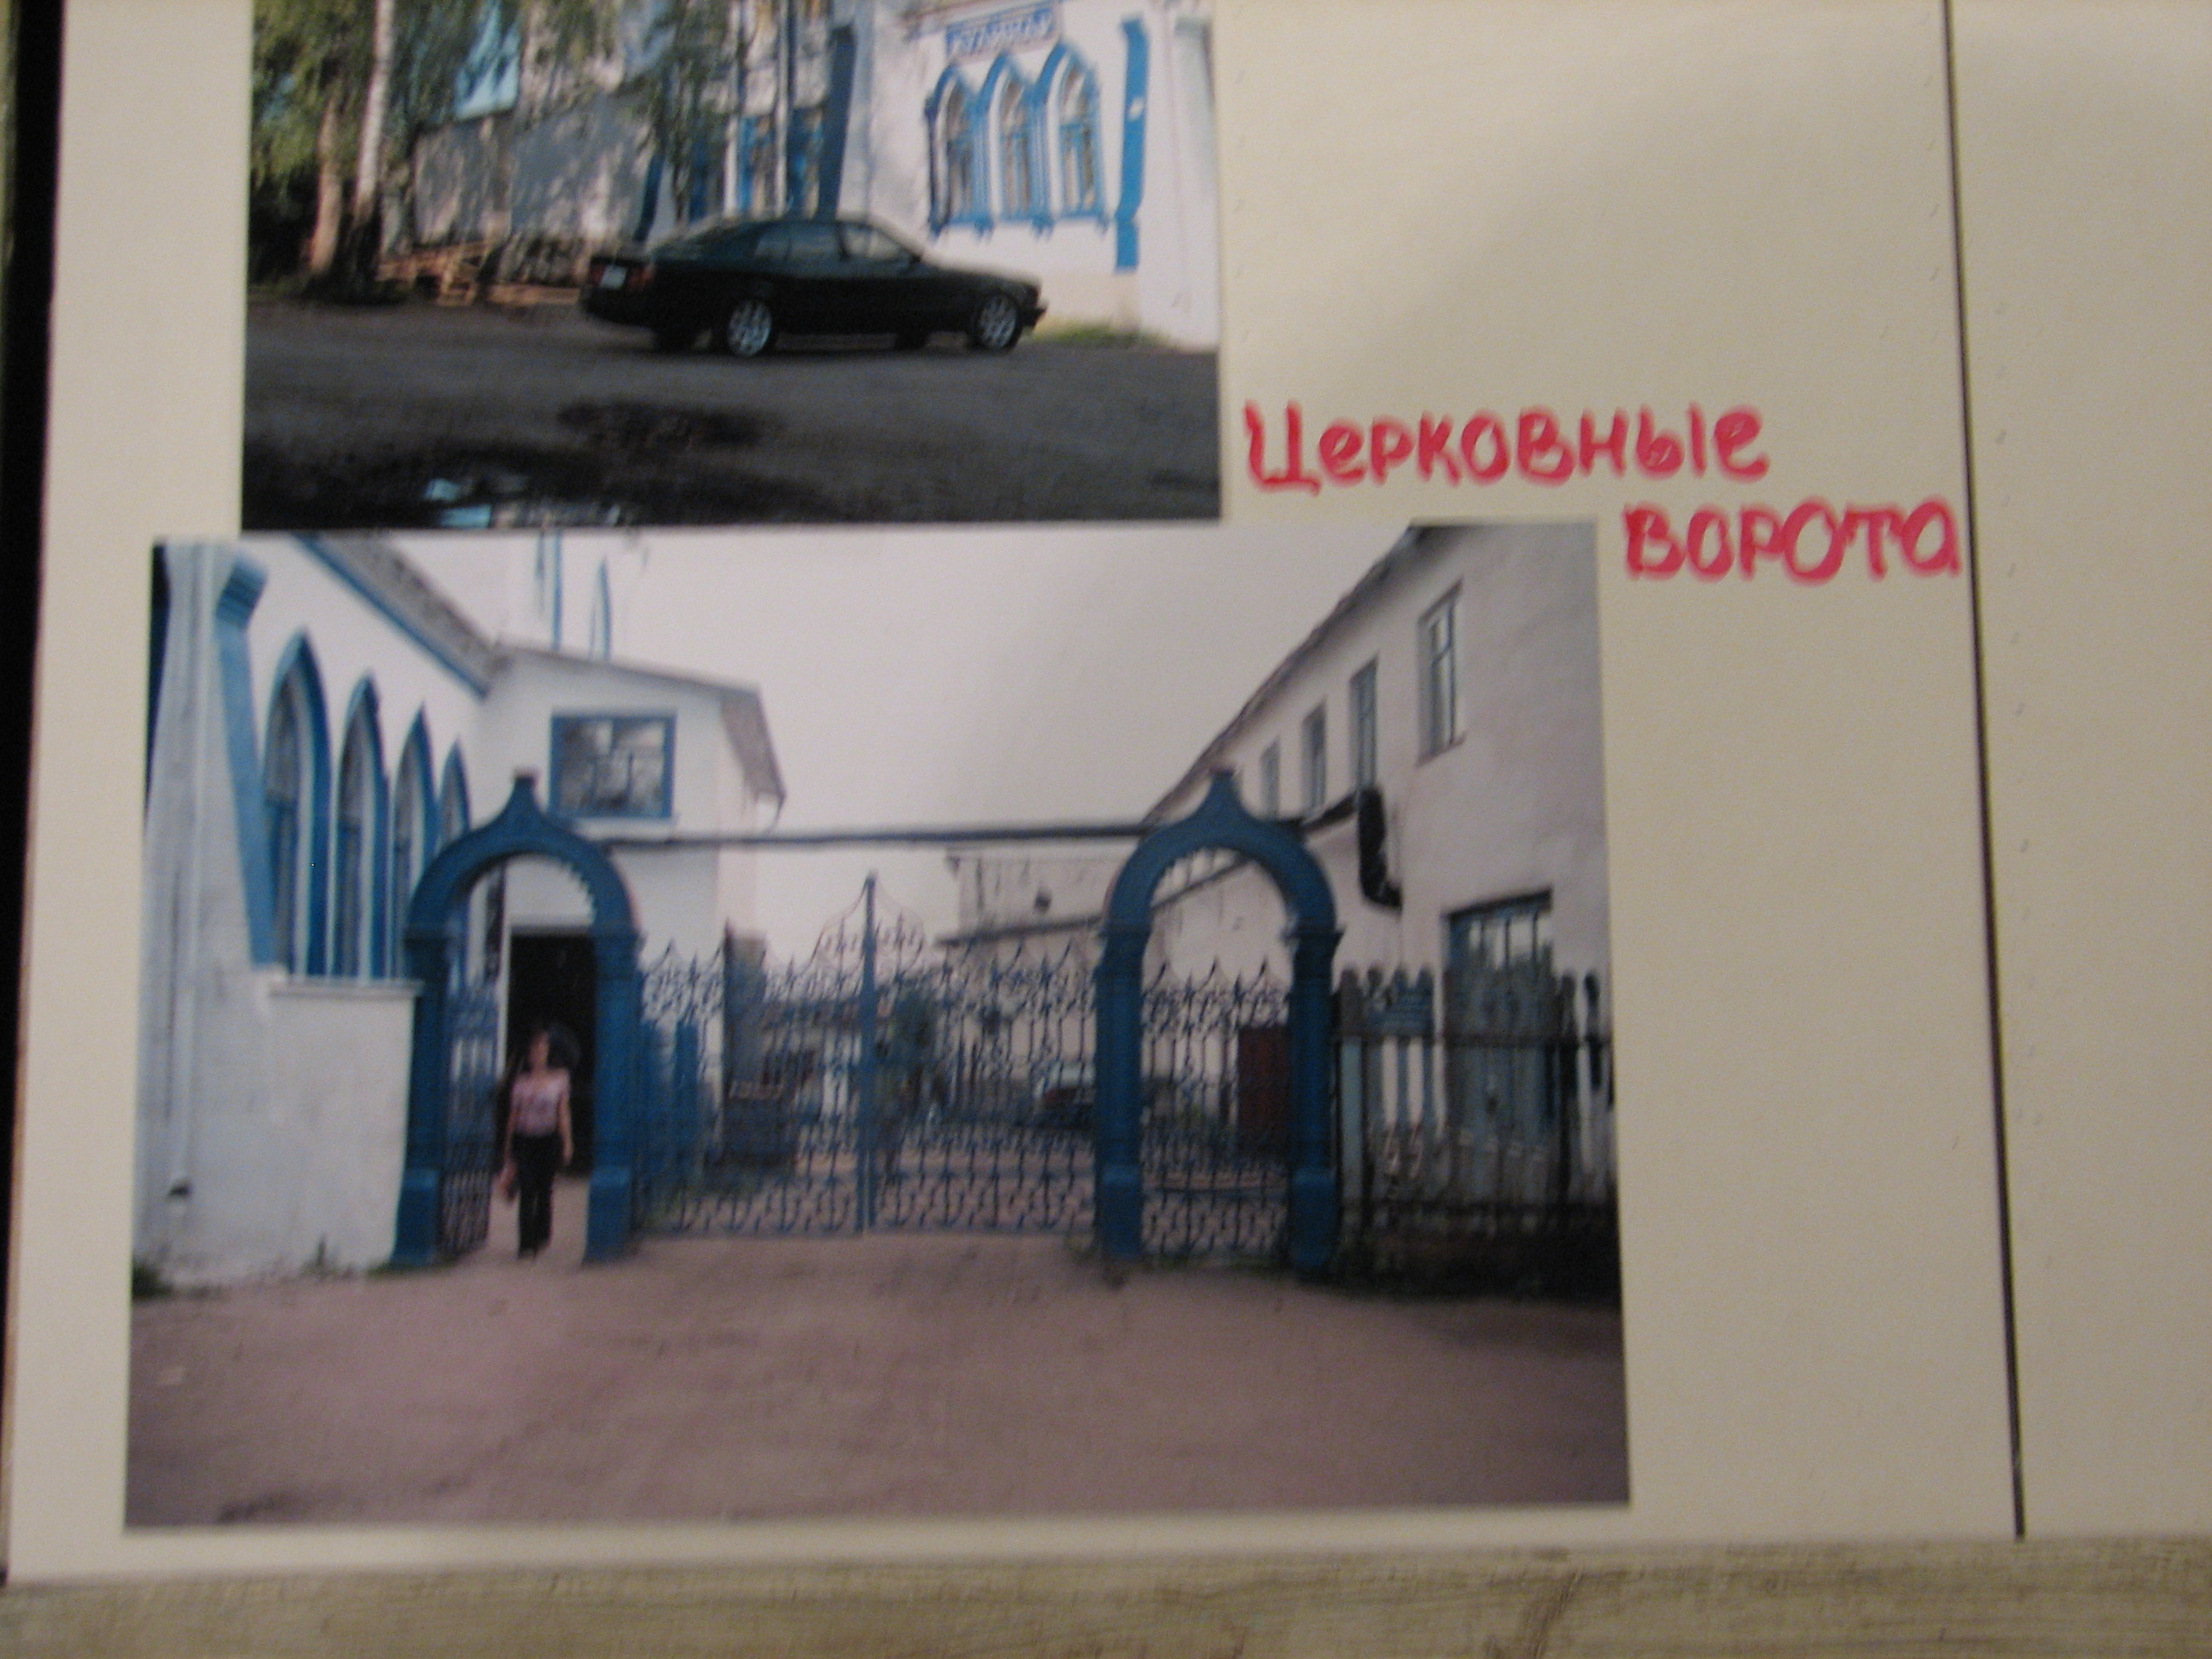 Церковные
ворота